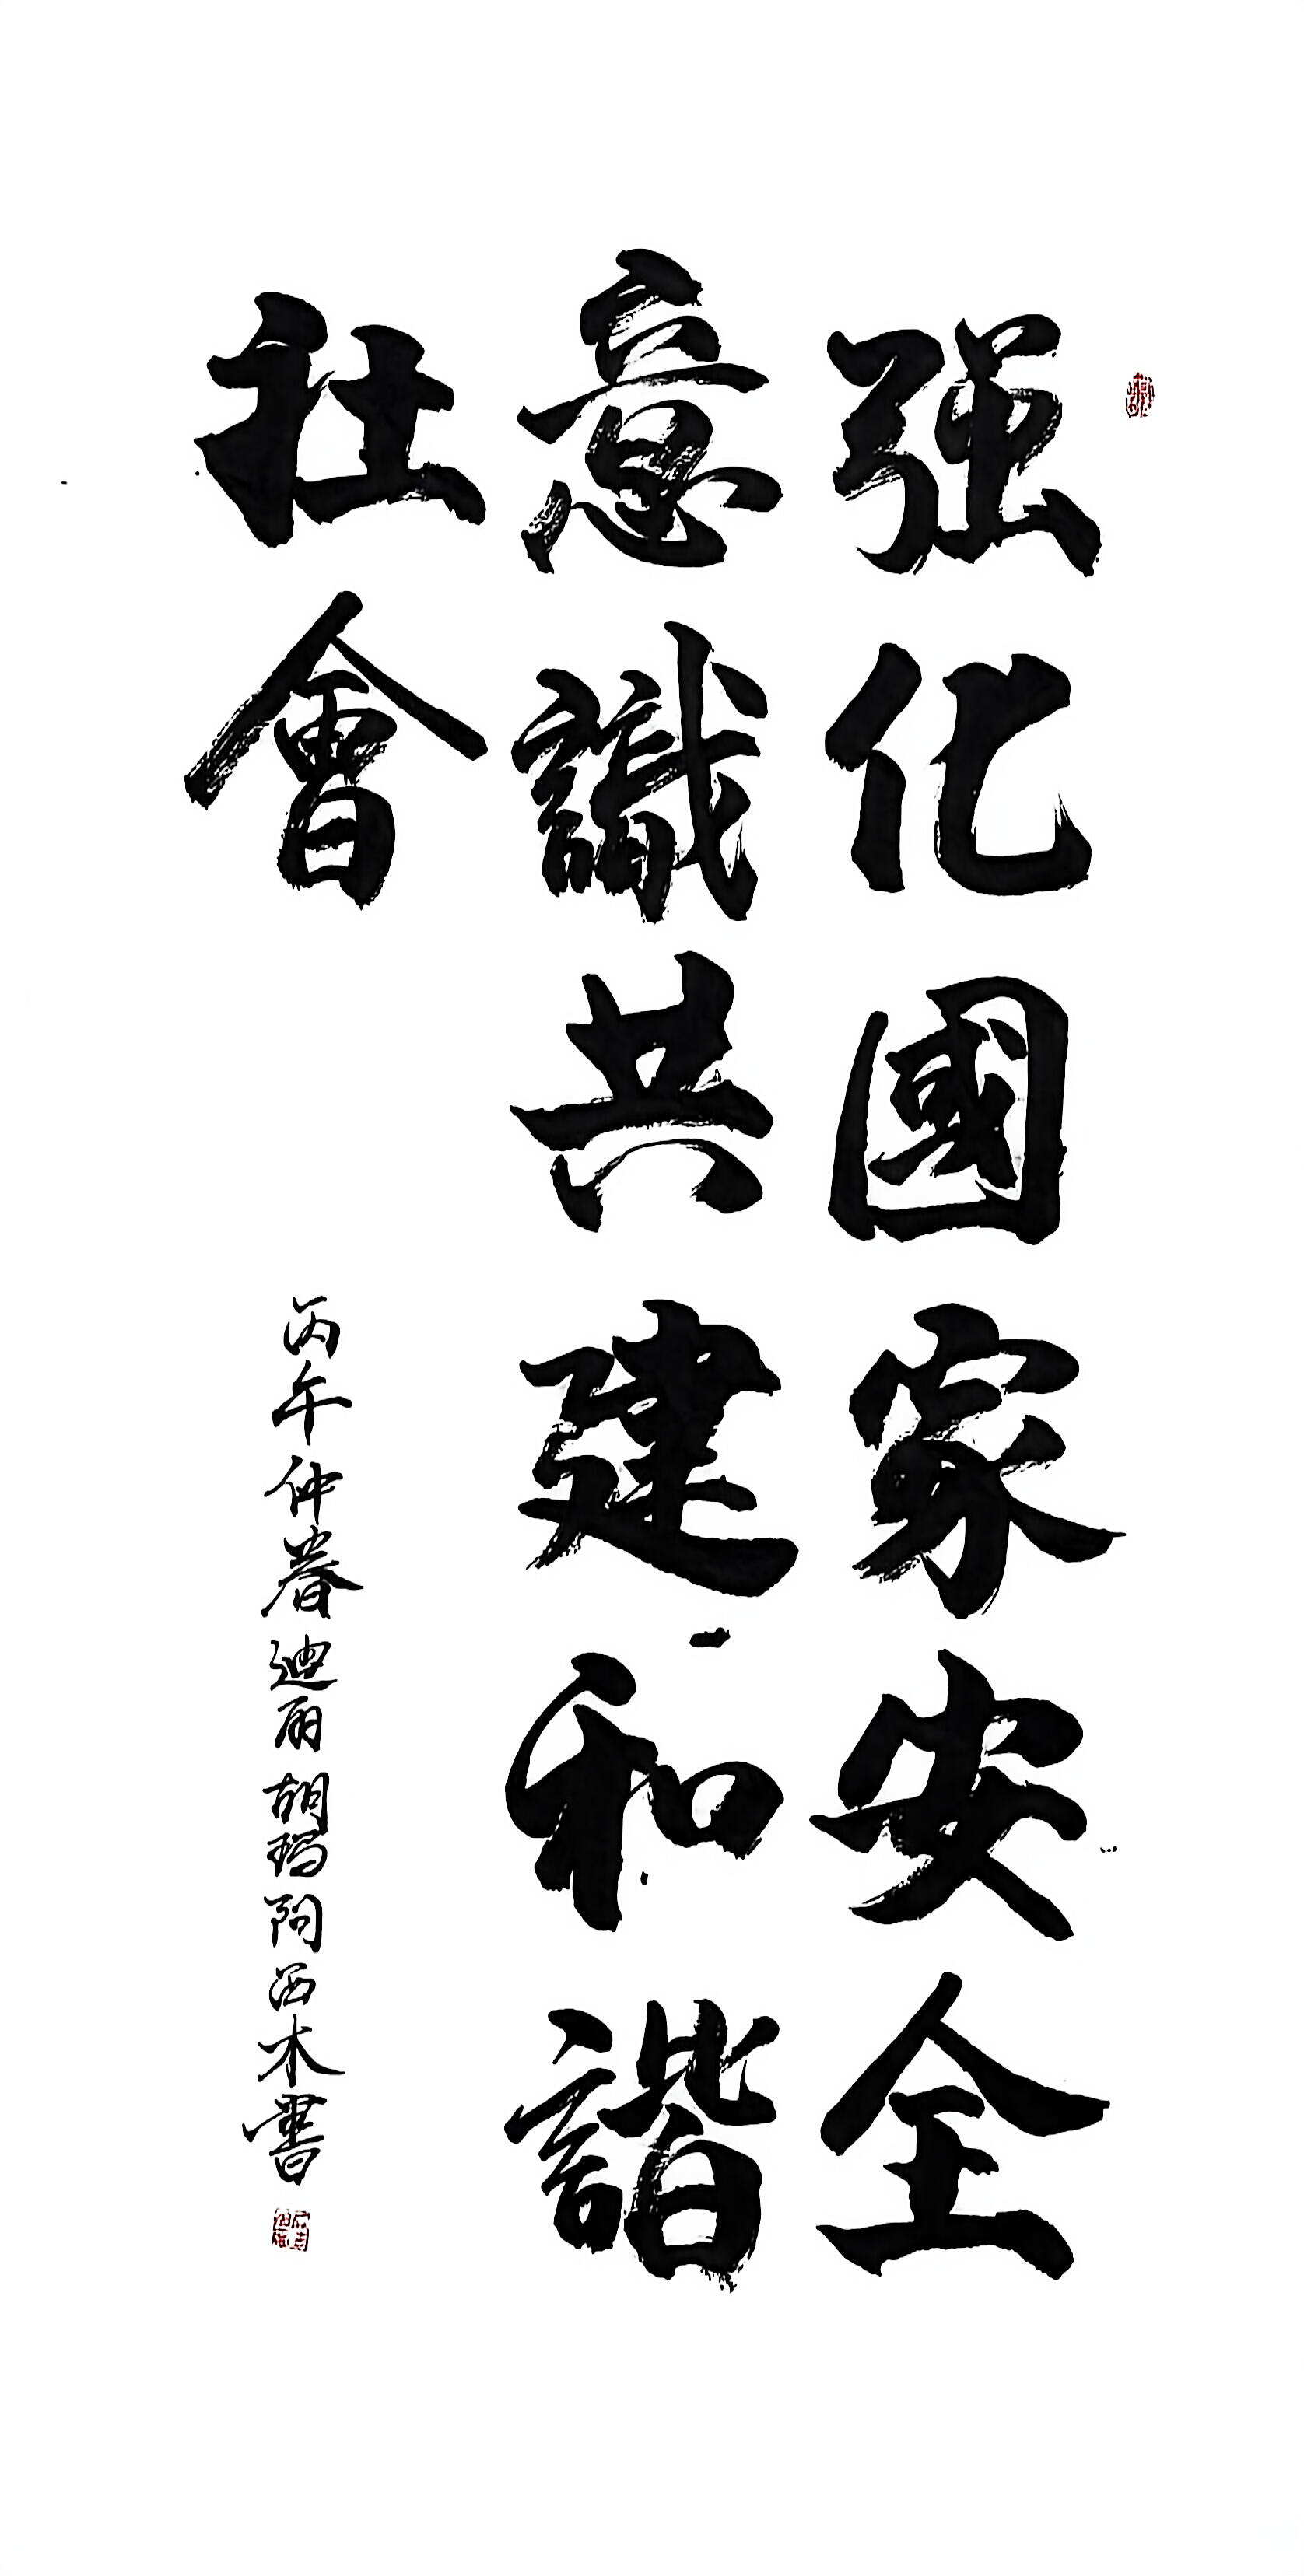 强化國家安全
意識共建和諧
社會
丙午仲春迪丽胡玛阿西木書